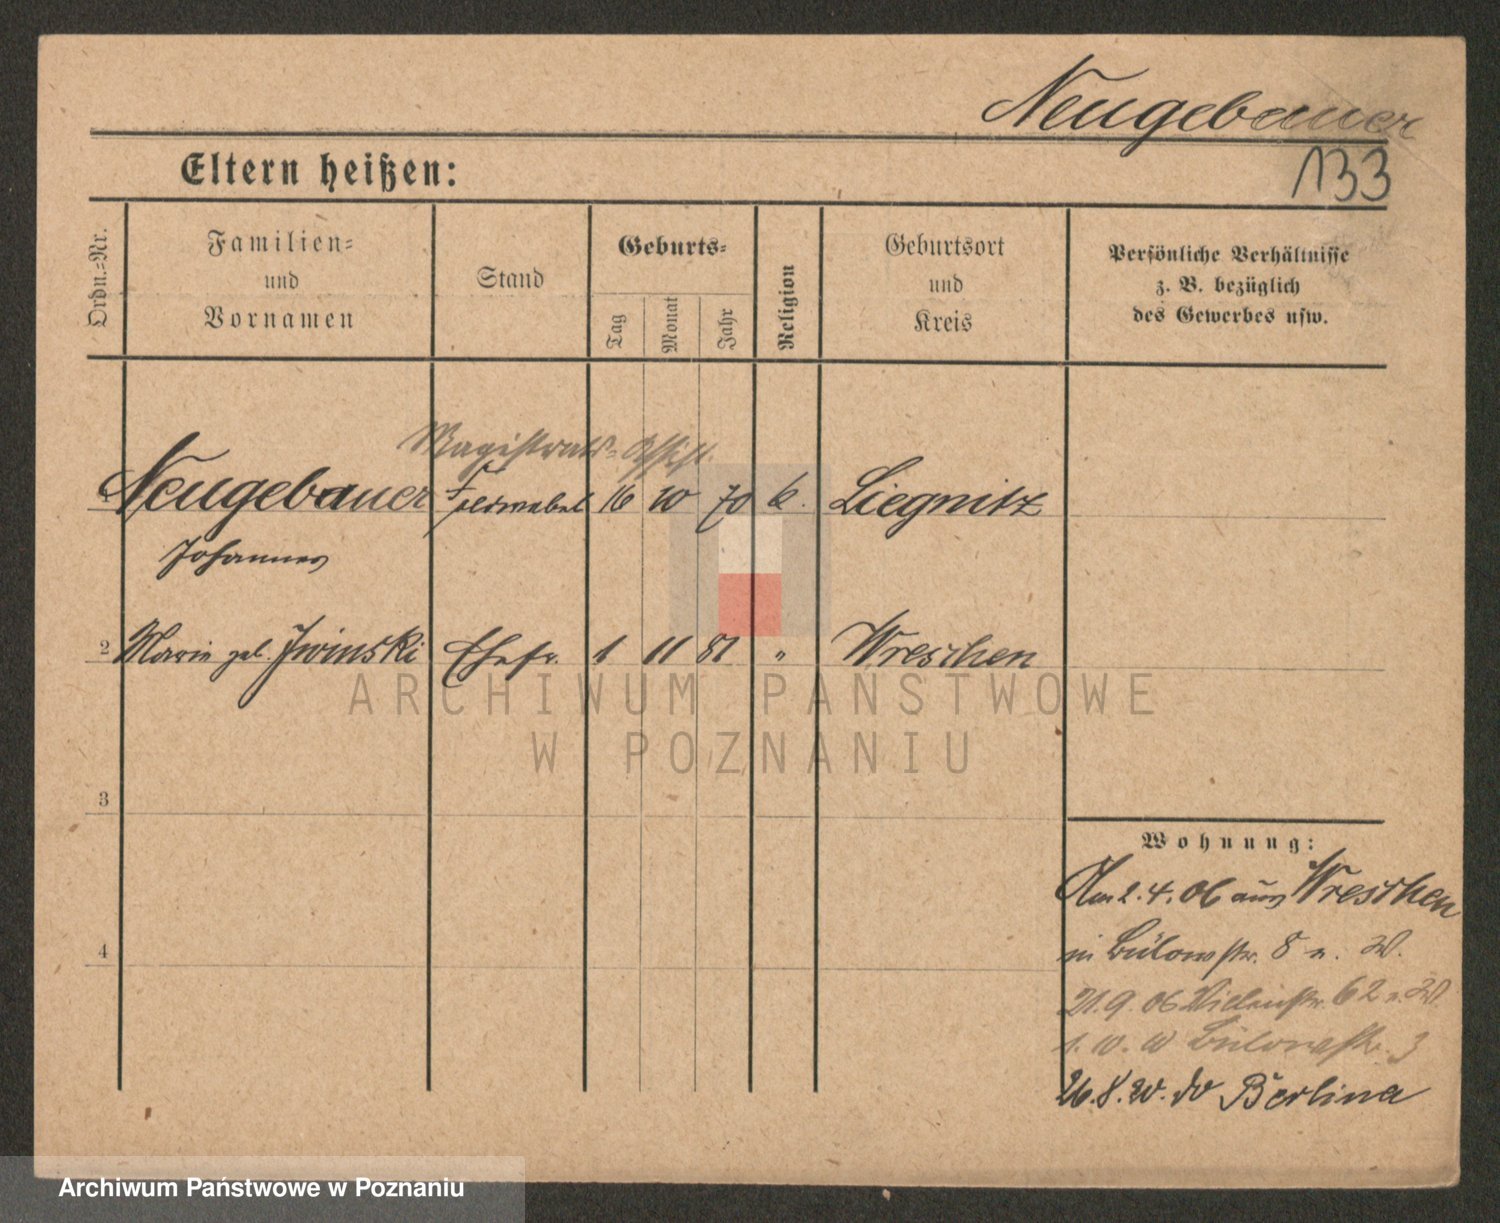 Neugebauer
133
Eltern heißen:
Ordn.=Nr.
Familien=
und
Vornamen
Stand
Geburts=
Tag
Monat
Jahr
Religion
Geburtsort
und
Kreis
Persönliche Verhältnisse
z. B. bezüglich
des Gewerbes usw.
Magistrats=Assist.
Neugebauer Feldwebel 16 10 70 k. Liegnitz
Johannes
2 Marie geb. Iwinski Ehefr. 1 11 81 " Wreschen
3
4
Wohnung:
Am 2.4.06 aus Wreschen
in Bülowstr. 8 n. W.
21.9.06 62 n. W.
1.10.10 Bülowstr. 3
26.8.20. do Berlina
ARCHIWUM PAŃSTWOWE
W POZNANIU
Archiwum Państwowe w Poznaniu